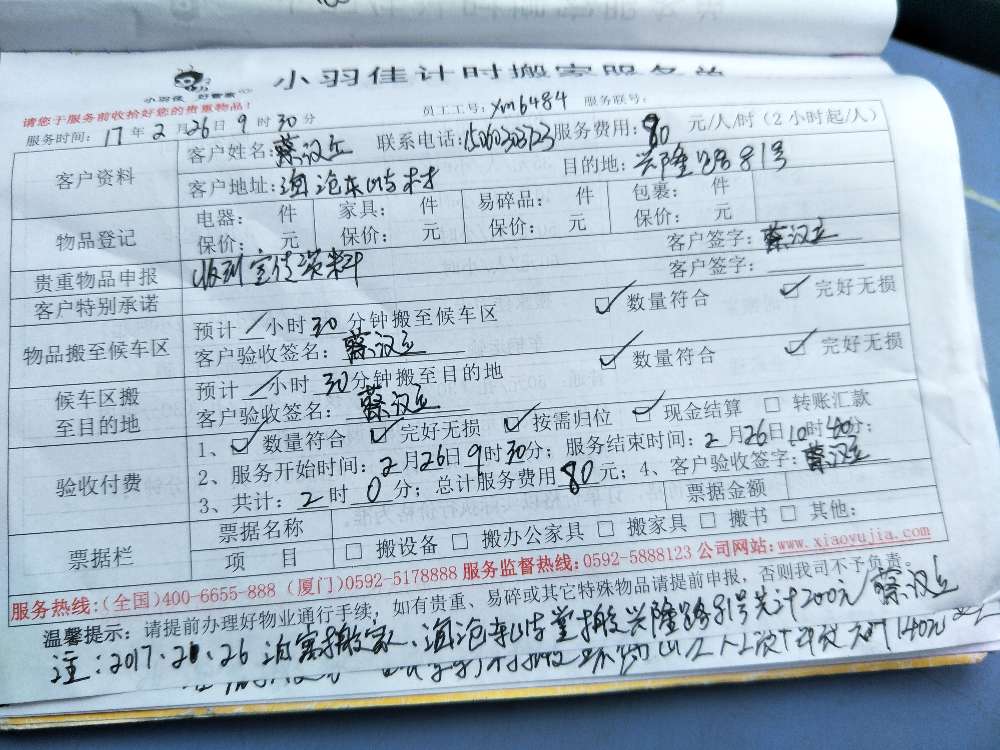 小羽佳计时搬家服务单
小羽佳 好管家
请您于服务前收拾好您的贵重物品!
员工工号: xm6484 服务联号:
服务时间: 17 年 2 月 26 日 9 时 30 分
客户资料
客户姓名: 蔡汉立 联系电话: 服务费用: 80 元/人/时 (2 小时起/人)
客户地址: 海沧东屿村 目的地: 兴隆路81号
物品登记
电器: 件 家具: 件 易碎品: 件 包裹: 件
保价: 元 保价: 元 保价: 元 保价: 元
贵重物品申报 收到宣传资料 客户签字: 蔡汉立
客户特别承诺 客户签字:
物品搬至候车区
预计 / 小时 30 分钟搬至候车区 ☑ 数量符合 ☑ 完好无损
客户验收签名: 蔡汉立
候车区搬至目的地
预计 / 小时 30 分钟搬至目的地 ☑ 数量符合 ☑ 完好无损
客户验收签名: 蔡汉立
验收付费
1、☑ 数量符合 ☑ 完好无损 ☑ 按需归位 ☑ 现金结算 □ 转账汇款
2、服务开始时间: 2 月 26 日 9 时 30 分; 服务结束时间: 2 月 26 日 10 时 40 分;
3、共计: 2 时 0 分; 总计服务费用 80 元; 4、客户验收签字: 蔡汉立
票据栏
票据名称 票据金额
项 目 □ 搬设备 □ 搬办公家具 □ 搬家具 □ 搬书 □ 其他:
服务热线:(全国)400-6655-888 (厦门)0592-5178888 服务监督热线:0592-5888123 公司网站:www.xiaoyujia.com
温馨提示: 请提前办理好物业通行手续, 如有贵重、易碎或其它特殊物品请提前申报, 否则我司不予负责。
注: 2017.2.26 搬家、海沧东屿 搬兴隆路81号共计200元/蔡汉立
140元